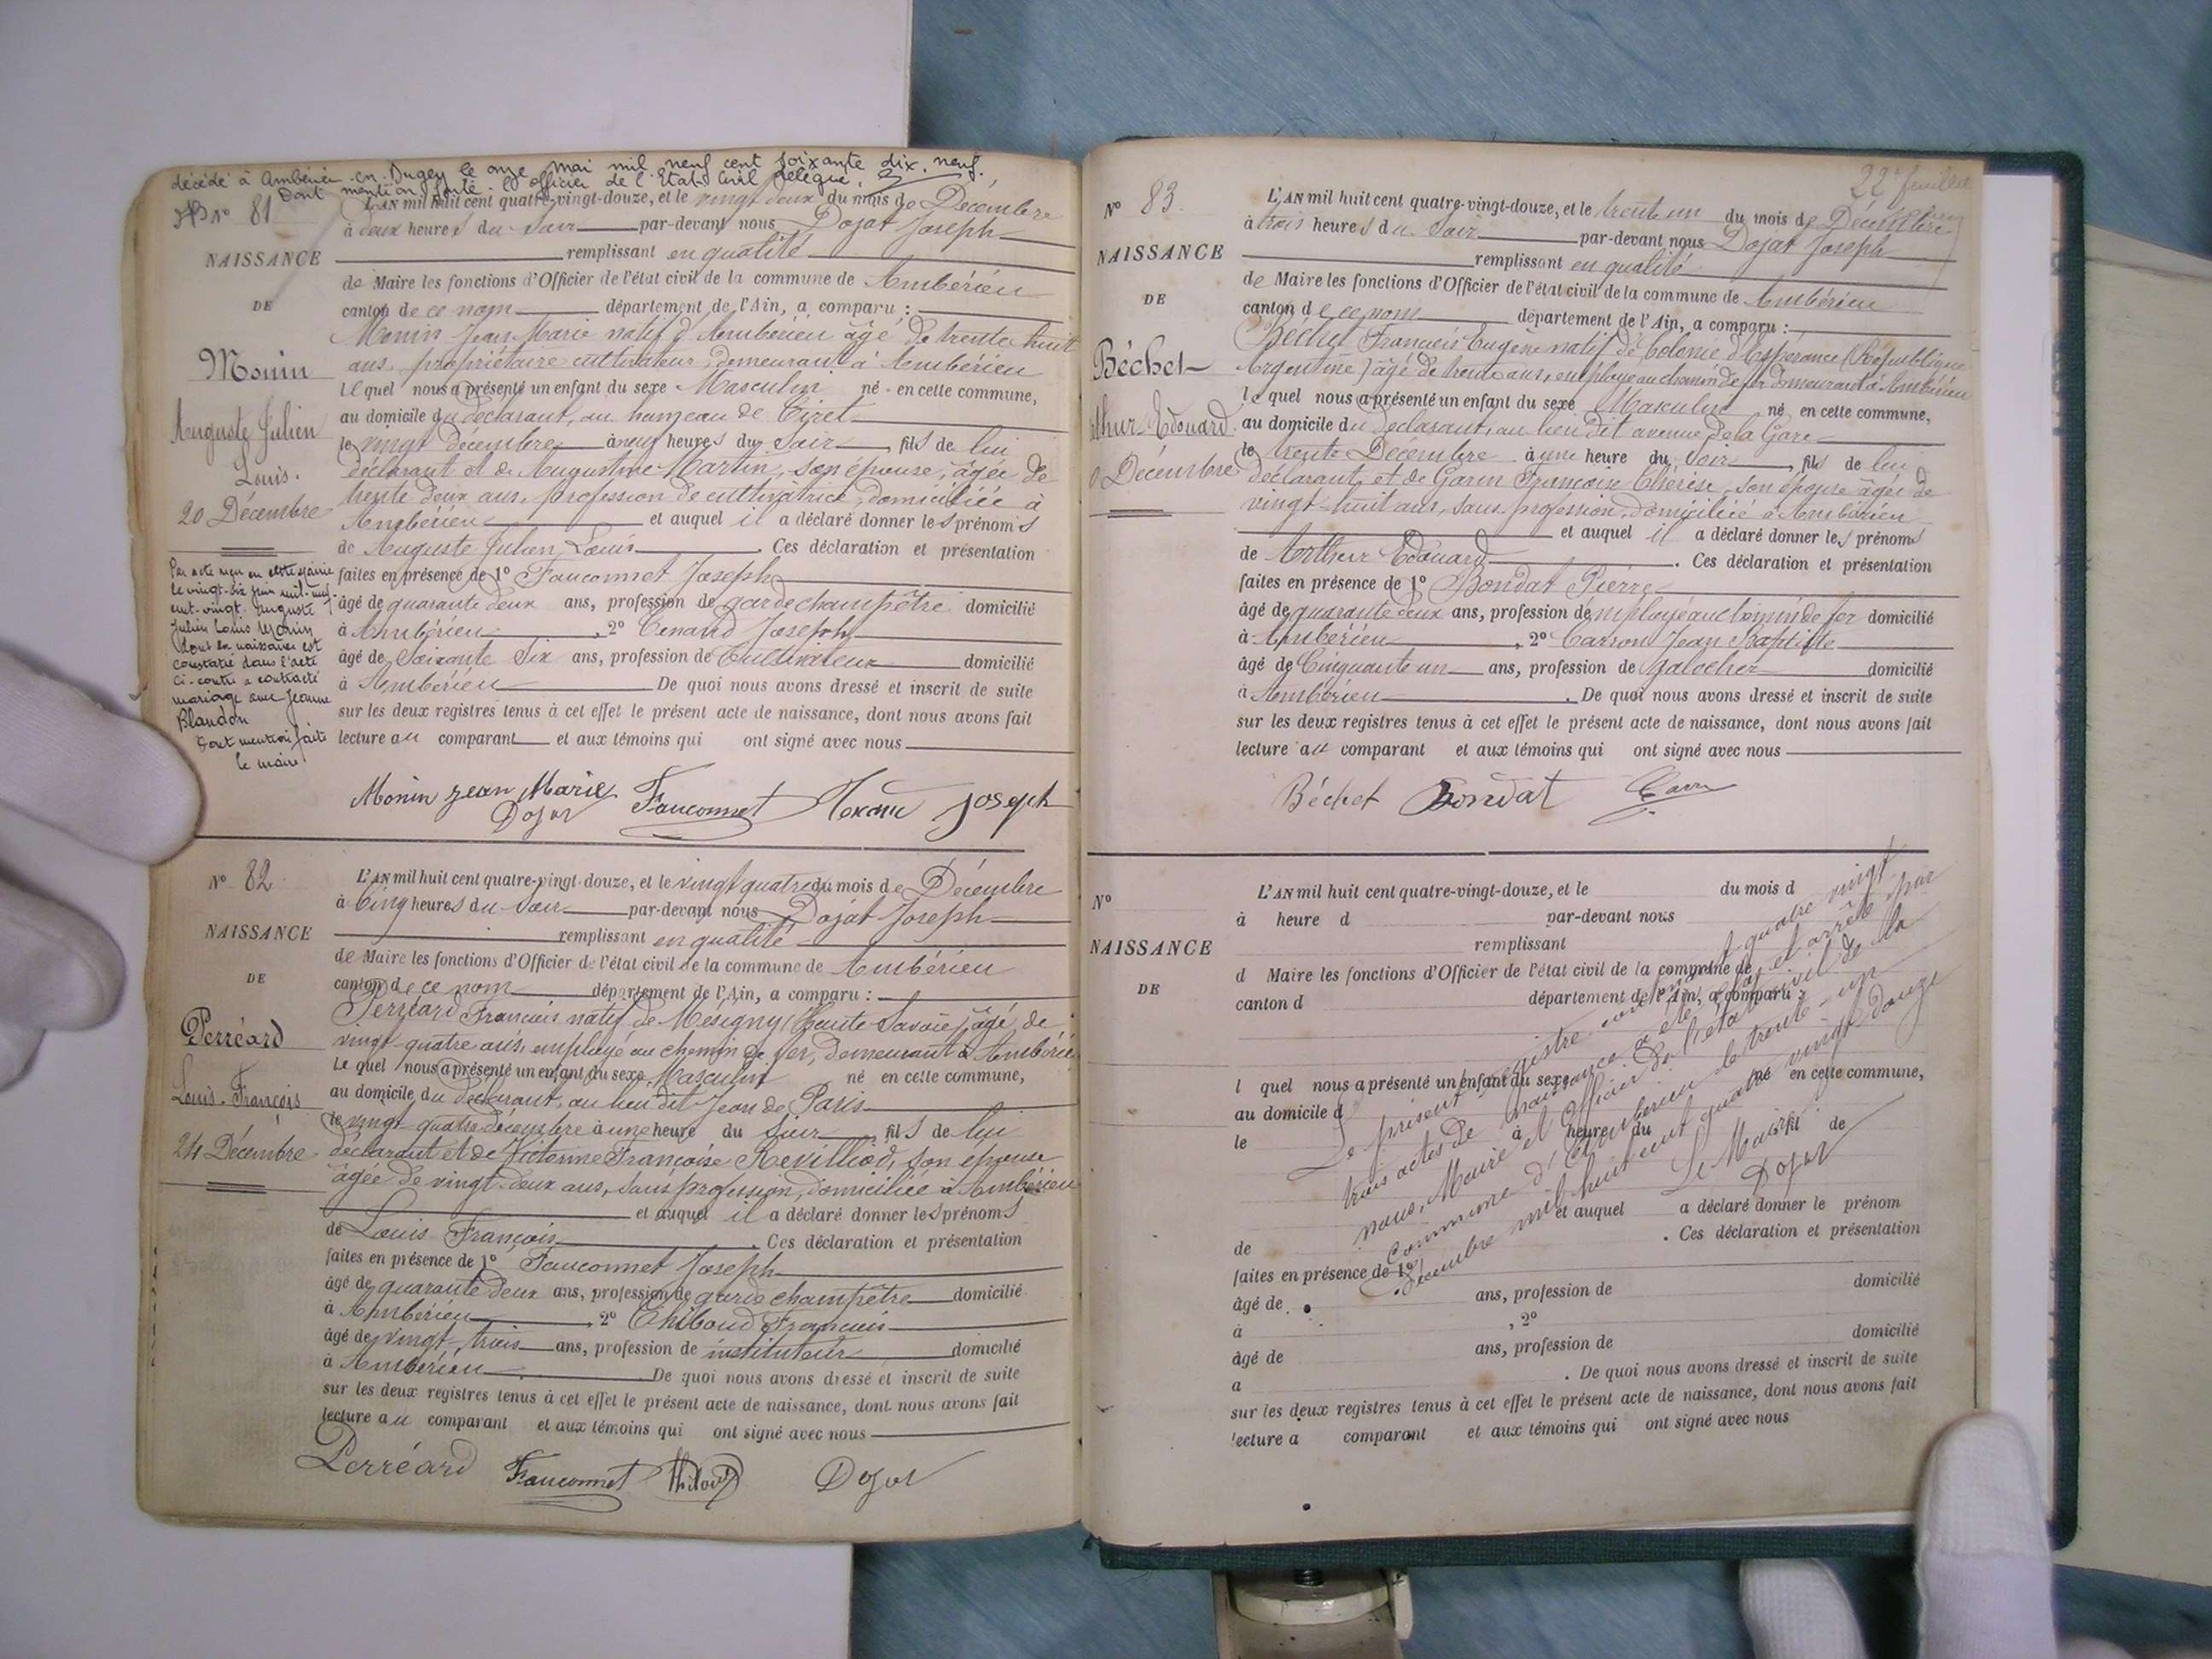 décédé à Ambérieu-en-Bugey le onze mai mil neuf cent soixante dix-neuf.
Dont mention faite. L'officier de l'Etat-Civil délégué.
N° 81
NAISSANCE
DE
Monin
Auguste Julien
Louis.
20 Décembre
Par acte reçu en cette mairie
le vingt-six juin mil-neuf-
cent-vingt Auguste
Julien Louis Monin
dont la naissance est
constatée dans l'acte
ci-contre a contracté
mariage avec Jeanne
Blandon
Dont mention faite
le maire
L'AN mil huit cent quatre-vingt-douze, et le vingt deux du mois de Décembre
à deux heures du soir par-devant nous Dojat Joseph
remplissant en qualité
de Maire les fonctions d'Officier de l'état civil de la commune de Ambérieu
canton de ce nom département de l'Ain, a comparu :
Monin Jean Marie natif d'Ambérieu âgé de trente huit
ans, propriétaire cultivateur, demeurant à Ambérieu
lequel nous a présenté un enfant du sexe Masculin né en cette commune,
au domicile du déclarant, au hameau de Tiret
le vingt décembre à neuf heures du soir, fils de lui
déclarant et de Augustine Martin, son épouse, âgée de
trente deux ans, profession de cultivatrice, domiciliée à
Ambérieu et auquel il a déclaré donner les prénoms
de Auguste Julien Louis. Ces déclaration et présentation
faites en présence de 1° Fauconnet Joseph
âgé de quarante deux ans, profession de garde champêtre domicilié
à Ambérieu, 2° Tenand Joseph
âgé de Soixante Six ans, profession de Cultivateur domicilié
à Ambérieu De quoi nous avons dressé et inscrit de suite
sur les deux registres tenus à cet effet le présent acte de naissance, dont nous avons fait
lecture au comparant et aux témoins qui ont signé avec nous
Monin jean Marie Fauconnet Tenan joseph
Dojat
N° 82
NAISSANCE
DE
Perréard
Louis-François
24 Décembre
L'AN mil huit cent quatre-vingt-douze, et le vingt quatre du mois de Décembre
à Cinq heures du soir par-devant nous Dojat Joseph
remplissant en qualité
de Maire les fonctions d'Officier de l'état civil de la commune de Ambérieu
canton de ce nom département de l'Ain, a comparu :
Perréard François natif de Mésigny (Haute-Savoie) âgé de
vingt-quatre ans, employé au chemin de fer, demeurant à Ambérieu
Lequel nous a présenté un enfant du sexe Masculin né en cette commune,
au domicile du déclarant, au lieu dit Jean de Paris
le vingt-quatre décembre à une heure du soir, fils de lui
déclarant et de Victorine Françoise Revilliod, son épouse
âgée de vingt-deux ans, sans profession, domiciliée à Ambérieu
et auquel il a déclaré donner les prénoms
de Louis François. Ces déclaration et présentation
faites en présence de 1° Fauconnet Joseph
âgé de quarante deux ans, profession de garde champêtre domicilié
à Ambérieu, 2° Thiboud François
âgé de vingt-trois ans, profession de instituteur domicilié
à Ambérieu. De quoi nous avons dressé et inscrit de suite
sur les deux registres tenus à cet effet le présent acte de naissance, dont nous avons fait
lecture au comparant et aux témoins qui ont signé avec nous
Perréard Fauconnet Thiboud Dojat
22e feuillet
N° 83
NAISSANCE
DE
Béchet
thur Edouard
0 Décembre
L'AN mil huit cent quatre-vingt-douze, et le trente un du mois de Décembre
à trois heures du soir par-devant nous Dojat Joseph
remplissant en qualité
de Maire les fonctions d'Officier de l'état civil de la commune de Ambérieu
canton de ce nom département de l'Ain, a comparu :
Béchet François Eugène natif de Colonie d'Espérance (République
Argentine) âgé de trente ans, employé au chemin de fer demeurant à Ambérieu
lequel nous a présenté un enfant du sexe Masculin né en cette commune,
au domicile du déclarant, au lieu dit avenue de la Gare
le trente Décembre à une heure du soir, fils de lui
déclarant et de Garin Françoise Thérèse, son épouse âgée de
vingt-huit ans, sans profession, domiciliée à Ambérieu
et auquel il a déclaré donner les prénoms
de Arthur Edouard. Ces déclaration et présentation
faites en présence de 1° Bondat Pierre
âgé de quarante deux ans, profession de employé au chemin de fer domicilié
à Ambérieu, 2° Carron Jean Baptiste
âgé de Cinquante un ans, profession de galocher domicilié
à Ambérieu. De quoi nous avons dressé et inscrit de suite
sur les deux registres tenus à cet effet le présent acte de naissance, dont nous avons fait
lecture au comparant et aux témoins qui ont signé avec nous
Béchet Bondat
N°
NAISSANCE
DE
L'AN mil huit cent quatre-vingt-douze, et le du mois d
à heure d par-devant nous
remplissant
d Maire les fonctions d'Officier de l'état civil de la commune de
canton d département de l'Ain, a comparu :
l quel nous a présenté un enfant du sexe né en cette commune,
au domicile d
le à heure du fil de
et auquel a déclaré donner le prénom
de . Ces déclaration et présentation
faites en présence de 1°
âgé de ans, profession de domicilié
à , 2°
âgé de ans, profession de domicilié
a . De quoi nous avons dressé et inscrit de suite
sur les deux registres tenus à cet effet le présent acte de naissance, dont nous avons fait
lecture a comparant et aux témoins qui ont signé avec nous
Le présent registre contenant quatre vingt
trois actes de naissance a été clos et arrêté par
nous, Maire et Officier de l'état civil de la
Commune d'Ambérieu le trente-un
Décembre mil huit cent quatre vingt douze
Le Maire
Dojat